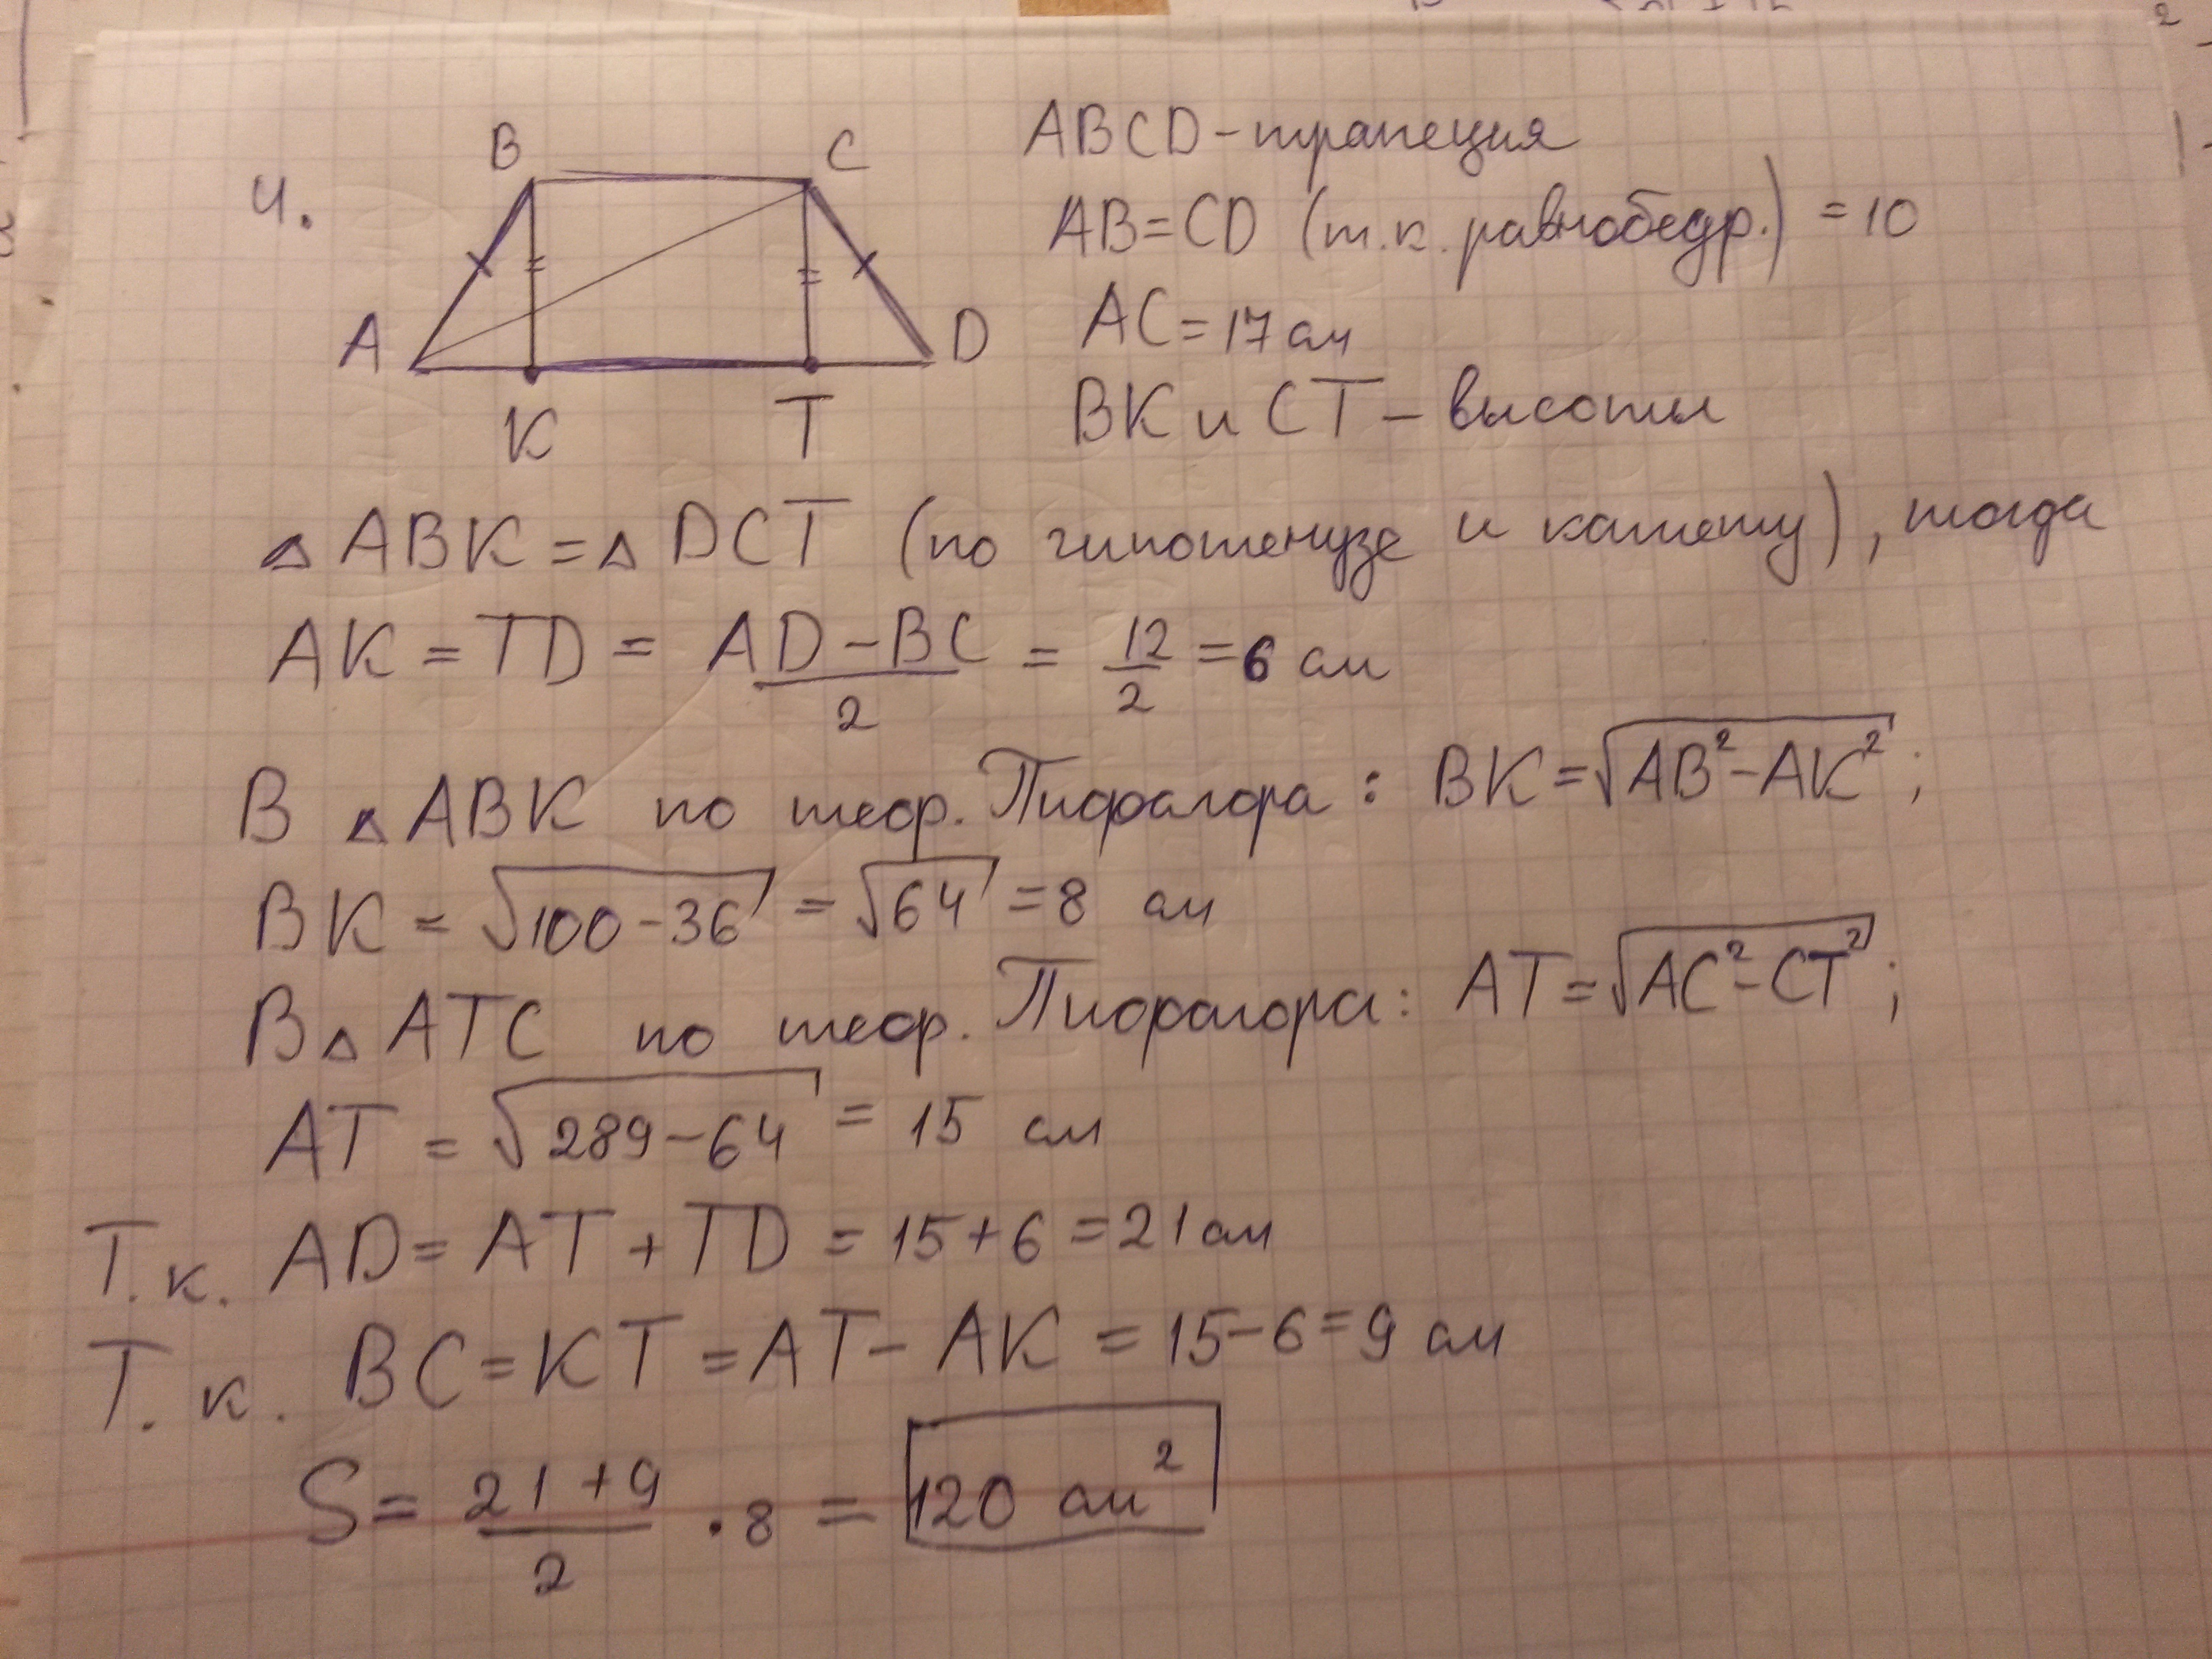 4.
B C
A D
K T
ABCD - трапеция
AB = CD (т.к. равнобедр.) = 10
AC = 17 см
BK и CT - высоты
△ABK = △DCT (по гипотенузе и катету), тогда
AK = TD = (AD - BC)/2 = 12/2 = 6 см
В △ABK по теор. Пифагора: BK = √(AB² - AK²);
BK = √(100 - 36) = √64 = 8 см
В △ATC по теор. Пифагора: AT = √(AC² - CT²);
AT = √(289 - 64) = 15 см
Т.к. AD = AT + TD = 15 + 6 = 21 см
Т.к. BC = KT = AT - AK = 15 - 6 = 9 см
S = (21 + 9)/2 · 8 = 120 см²